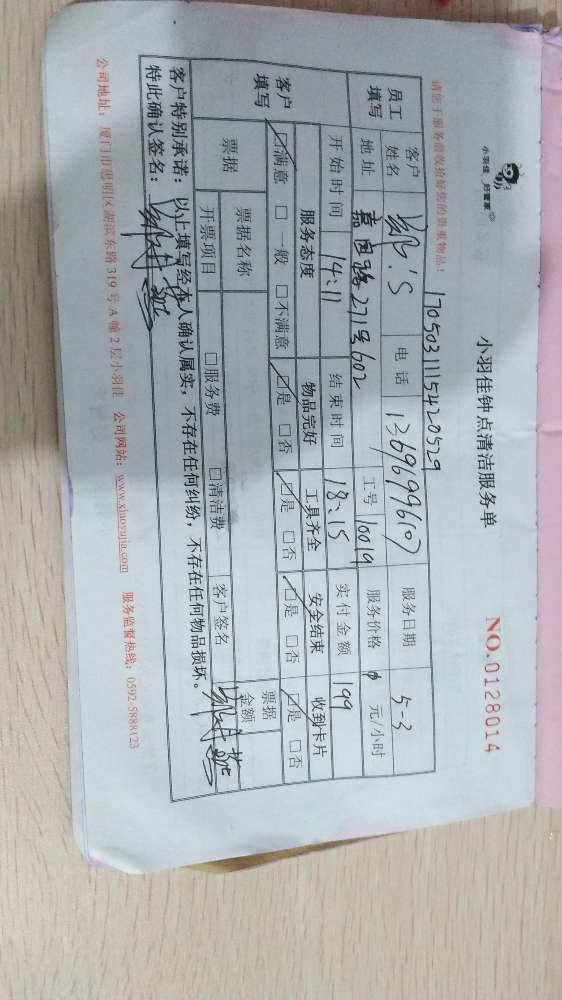 小羽佳 归管家
小羽佳钟点清洁服务单
NO.0128014
请您于服务前收拾好您的贵重物品！
1705031115420529
员工填写 客户姓名 郑'S 电话 13696996107 服务日期 5-3
地址 嘉园路271号602 工号 10019 服务价格 元/小时
开始时间 14:11 结束时间 18:15 实付金额 199
客户填写 服务态度 物品完好 工具齐全 安全结束 收到卡片
☑满意 □一般 □不满意 ☑是 □否 ☑是 □否 ☑是 □否 ☑是 □否
票据 票据名称 票据金额
开票项目 □服务费 □清洁费 客户签名
客户特别承诺：以上填写经本人确认属实，不存在任何纠纷，不存在任何物品损坏。
特此确认签名：
公司地址：厦门市思明区湖滨东路319号A幢2层小羽佳 公司网站：www.xiaoyujia.com 服务监督热线：0592-5888123